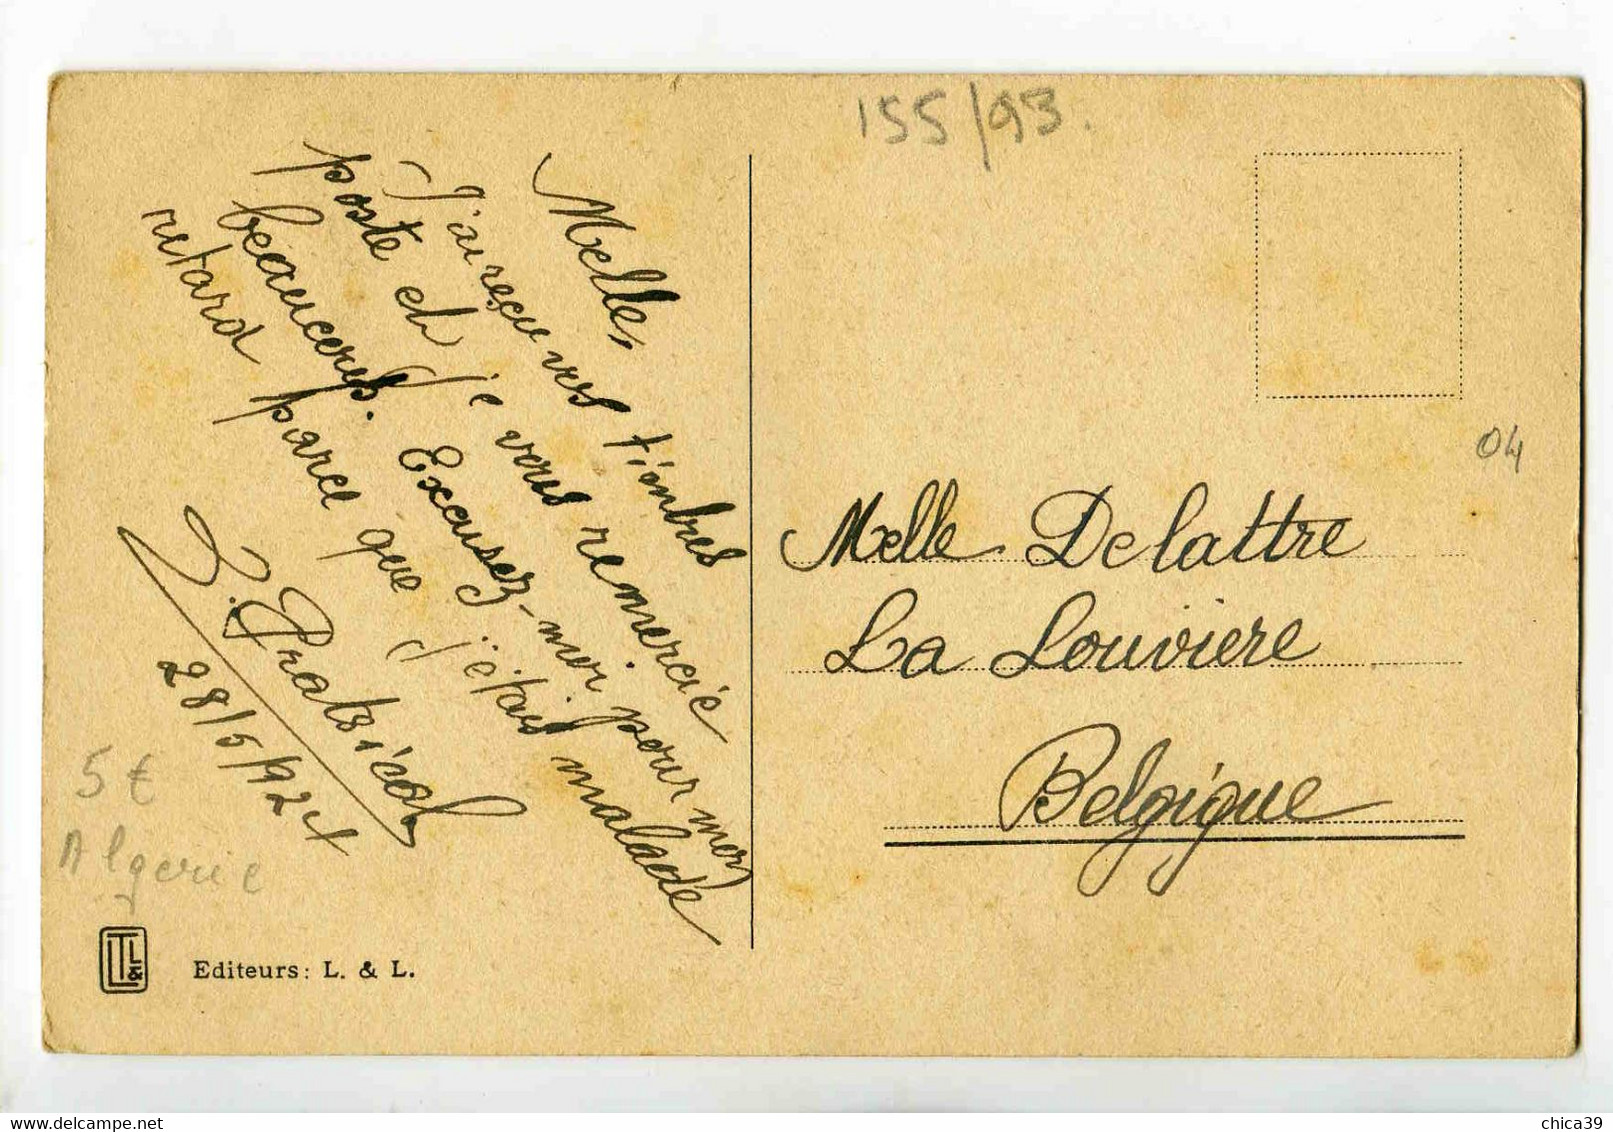 155/93.
Melle,
J'ai reçu vos timbres
poste et je vous remercie
beaucoup. Excusez-moi pour mon
retard parce que j'étais malade
28/5/1924
5 €
Algerie
Editeurs: L. & L.
04
Melle Delattre
La Louviere
Belgique
chica39